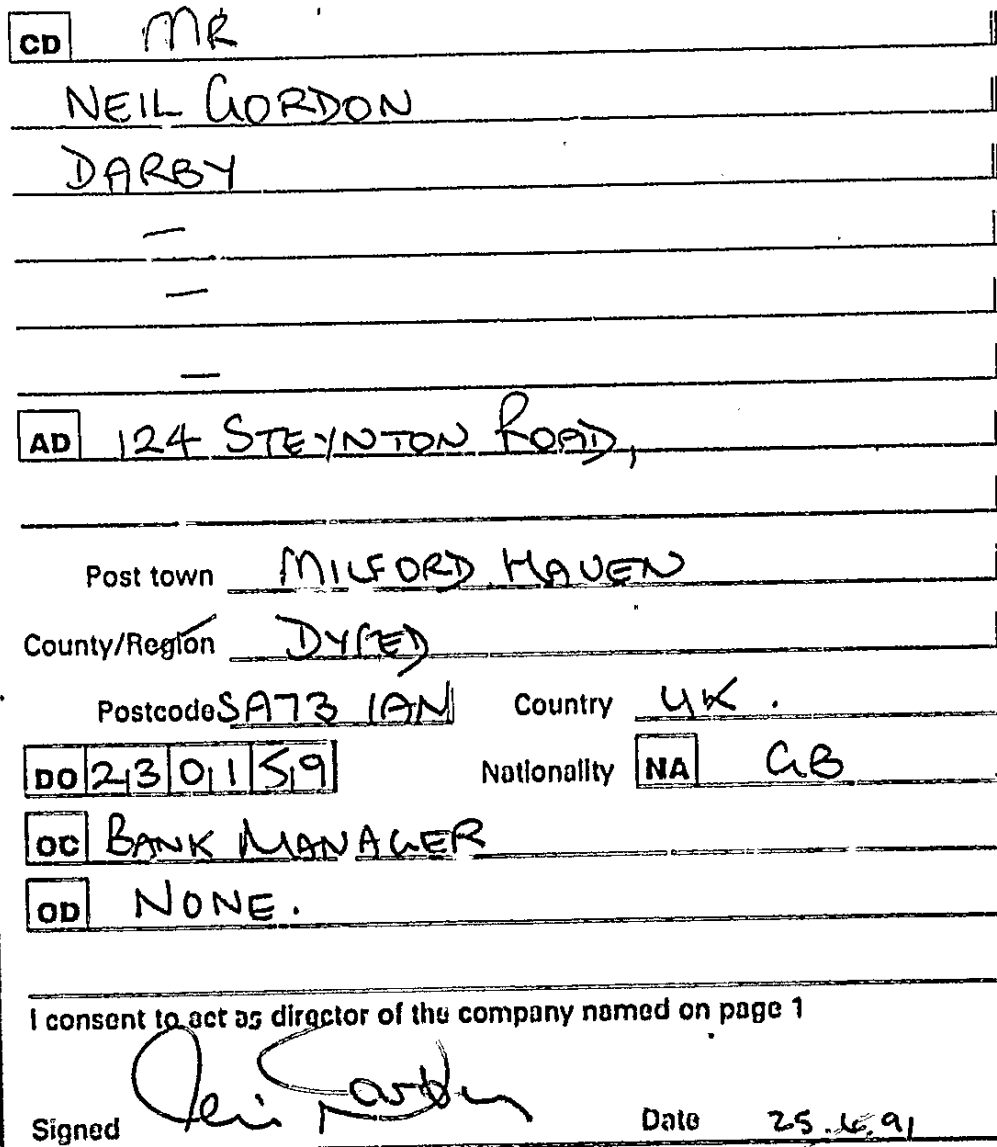 CD MR
NEIL GORDON
DARBY
—
—
—
AD 124 STEYNTON ROAD,
Post town MILFORD HAVEN
County/Region DYFED
Postcode SA73 1AN Country UK.
DO 23 01 59 Nationality NA GB
OC BANK MANAGER
OD NONE.
I consent to act as director of the company named on page 1
Signed Date 25. .91